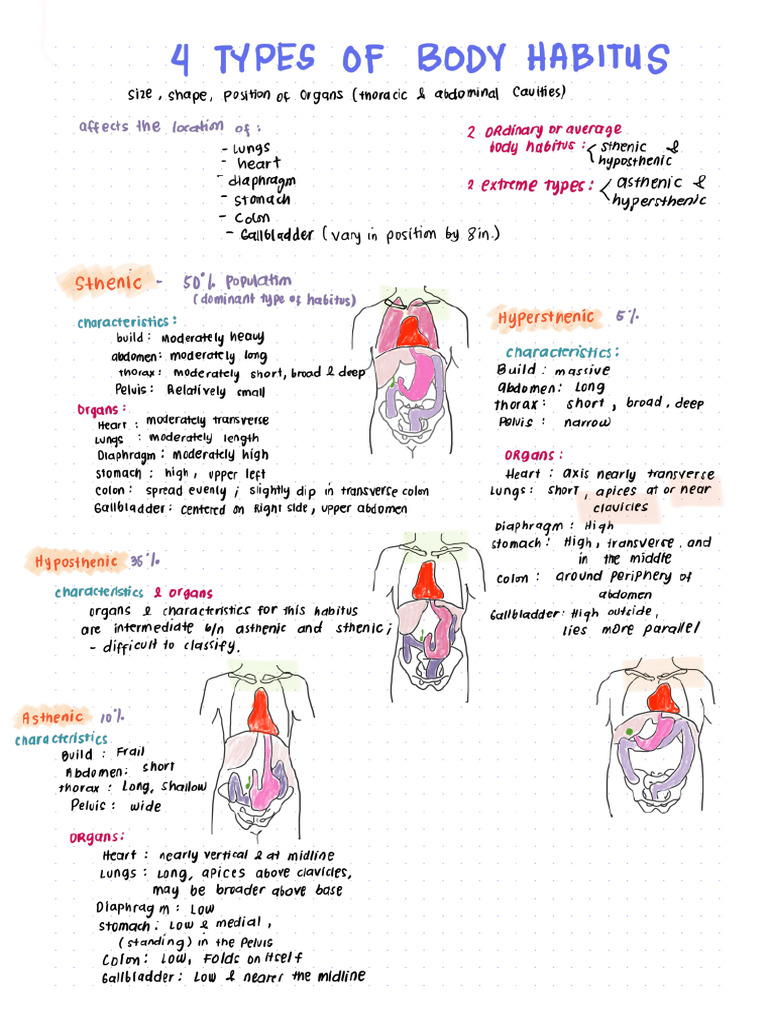 4 TYPES OF BODY HABITUS
size, shape, position of organs (thoracic & abdominal cavities)
affects the location of:
- Lungs
- heart
- diaphragm
- stomach
- colon
- Gallbladder (vary in position by 8in.)
2 ordinary or average
body habitus: sthenic &
hyposthenic
2 extreme types: asthenic &
hypersthenic
Sthenic - 50% Population
(dominant type of habitus)
characteristics:
build: moderately heavy
abdomen: moderately long
thorax: moderately short, broad & deep
Pelvis: Relatively small
Organs:
Heart: moderately transverse
Lungs: moderate length
Diaphragm: moderately high
stomach: high, upper left
colon: spread evenly; slightly dip in transverse colon
Gallbladder: centered on Right side, upper abdomen
Hypersthenic 5%
characteristics:
Build: massive
abdomen: Long
thorax: short, broad, deep
Pelvis: narrow
ORgans:
Heart: axis nearly transverse
Lungs: short, apices at or near
clavicles
Diaphragm: High
stomach: High, transverse, and
in the middle
colon: around periphery of
abdomen
Gallbladder: High outside,
lies more parallel
Hyposthenic 35%
characteristics & organs
organs & characteristics for this habitus
are intermediate b/n asthenic and sthenic;
- difficult to classify.
Asthenic 10%
characteristics
Build: Frail
Abdomen: short
thorax: Long, shallow
Pelvis: wide
ORgans:
Heart: nearly vertical & at midline
Lungs: Long, apices above clavicles,
may be broader above base
Diaphragm: Low
stomach: Low & medial,
(standing) in the Pelvis
Colon: Low, Folds on Itself
Gallbladder: Low & nearer the midline